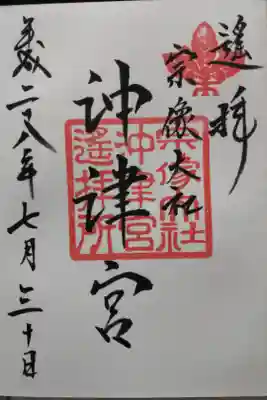 遥拝
宗像大社
沖津宮
平成二八年七月三十日
宗像大社
沖津宮
遥拝所